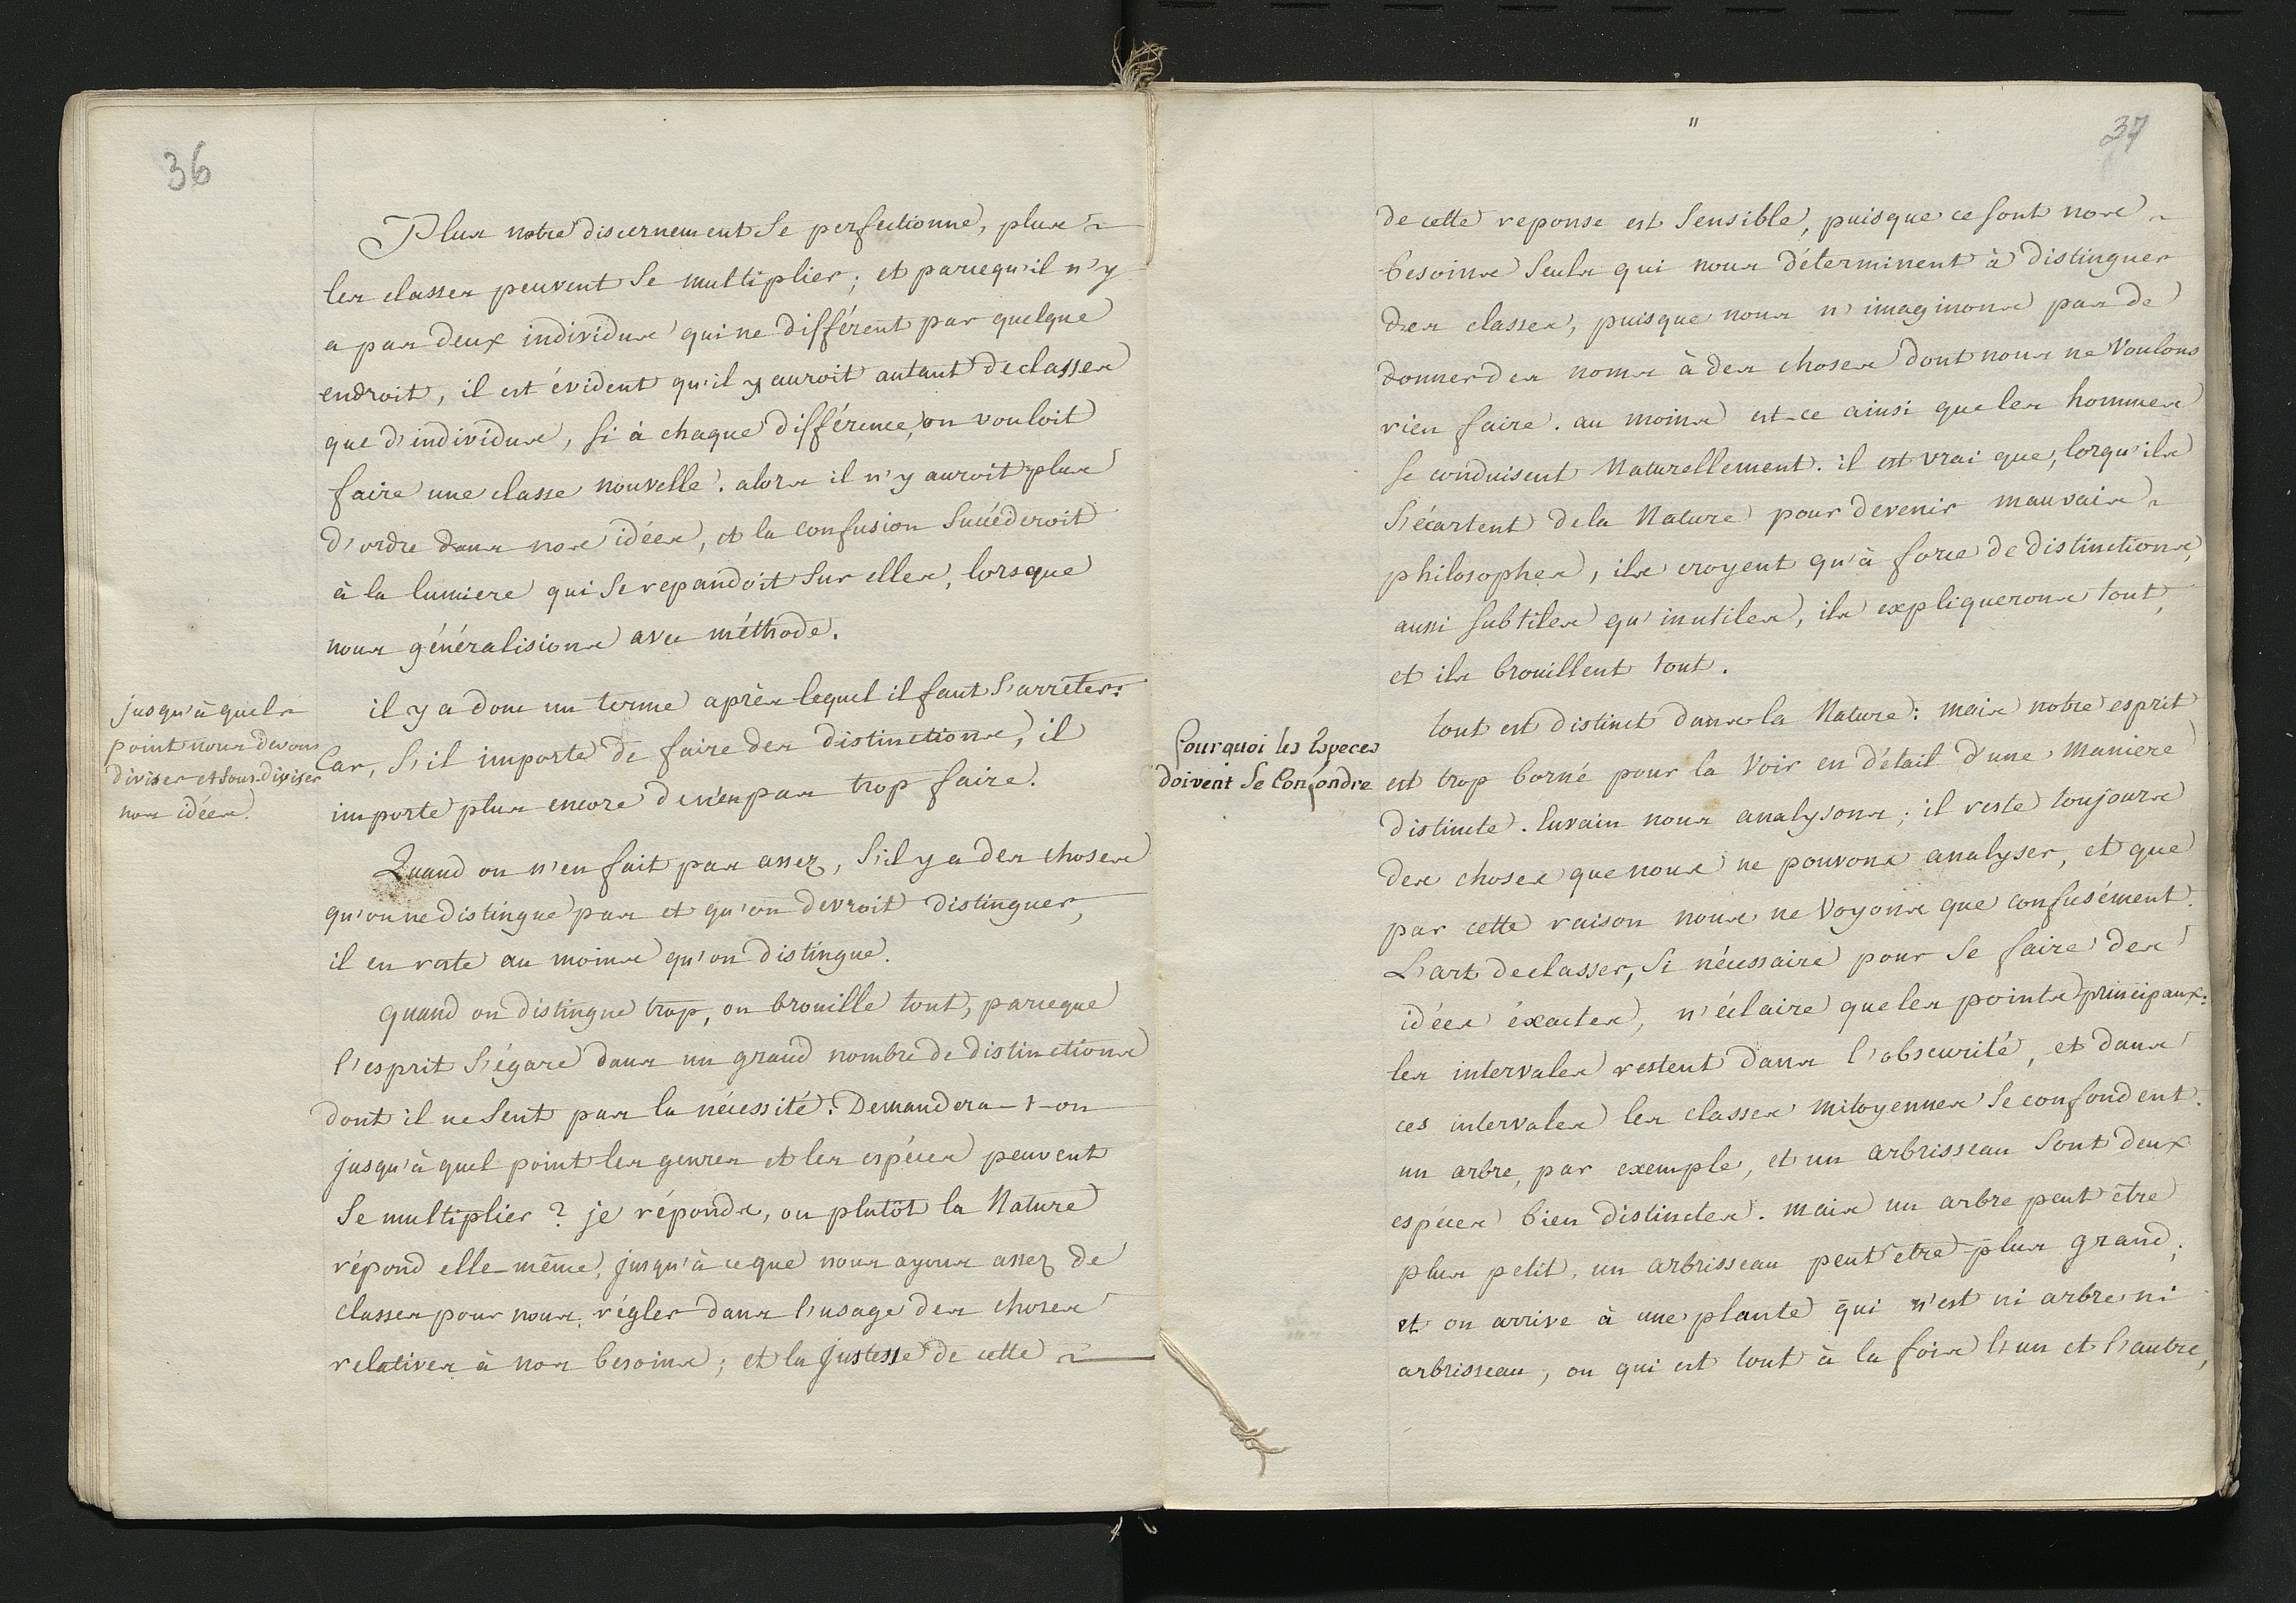 36
Plus notre discernement se perfectionne, plus
les classes peuvent se multiplier; et parcequ'il n'y
a pas deux individus qui ne différent par quelque
endroit, il est évident qu'il y auroit autant de classes
que d'individus, si à chaque différence, on vouloit
faire une classe nouvelle. alors il n'y auroit plus
d'ordre dans nos idées, et la confusion succéderoit
à la lumiere qui se repandoit sur elles, lorsque
nous généralisions avec méthode.
jusqu'à quel
point nous devons
diviser et sous-diviser
nos idées.
il y a donc un terme après lequel il faut s'arrêter:
Car, s'il importe de faire des distinctions, il
importe plus encore de n'en pas trop faire.
Quand on n'en fait pas assez, s'il y a des choses
qu'on ne distingue pas et qu'on devroit distinguer,
il en reste au moins qu'on distingue.
quand on distingue trop, on brouille tout, parceque
l'esprit s'égare dans un grand nombre de distinctions
dont il ne sent pas la nécessité. Demandera-t-on
jusqu'à quel point les genres et les espéces peuvent
se multiplier? je réponds, ou plutôt la Nature
répond elle-même, jusqu'à ce que nous ayons assez de
classes pour nous régler dans l'usage des choses
relatives à nos besoins; et la justesse de cette
"
37
de cette reponse est sensible, puisque ce sont nos
besoins seuls qui nous déterminent à distinguer
des classes, puisque nous n'imaginons pas de
donner des noms à des choses dont nous ne voulons
rien faire. au moins est-ce ainsi que les hommes
se conduisent Naturellement. il est vrai que, lorqu'ils
s'écartent de la Nature pour devenir mauvais
philosophes, ils croyent qu'à force de distinctions,
aussi subtiles qu'inutiles, ils expliquerons tout,
et ils brouillent tout.
Pourquoi les Especes
doivent se Confondre
tout est distinct dans la Nature: mais notre esprit
est trop borné pour la voir en détail d'une maniere
distincte. Envain nous analysons; il reste toujours
des choses que nous ne pouvons analyser, et que
par cette raison nous ne voyons que confusément.
L'art de classer, si nécessaire pour se faire des
idées éxactes, n'éclaire que les points principaux:
les intervales restent dans l'obscurité, et dans
ces intervales les classes mitoyennes se confondent.
un arbre, par exemple, et un arbrisseau sont deux
espéces bien distinctes. mais un arbre peut être
plus petit, un arbrisseau peut être plus grand;
et on arrive à une plante qui n'est ni arbre ni
arbrisseau, ou qui est tout à la fois l'un et l'autre,